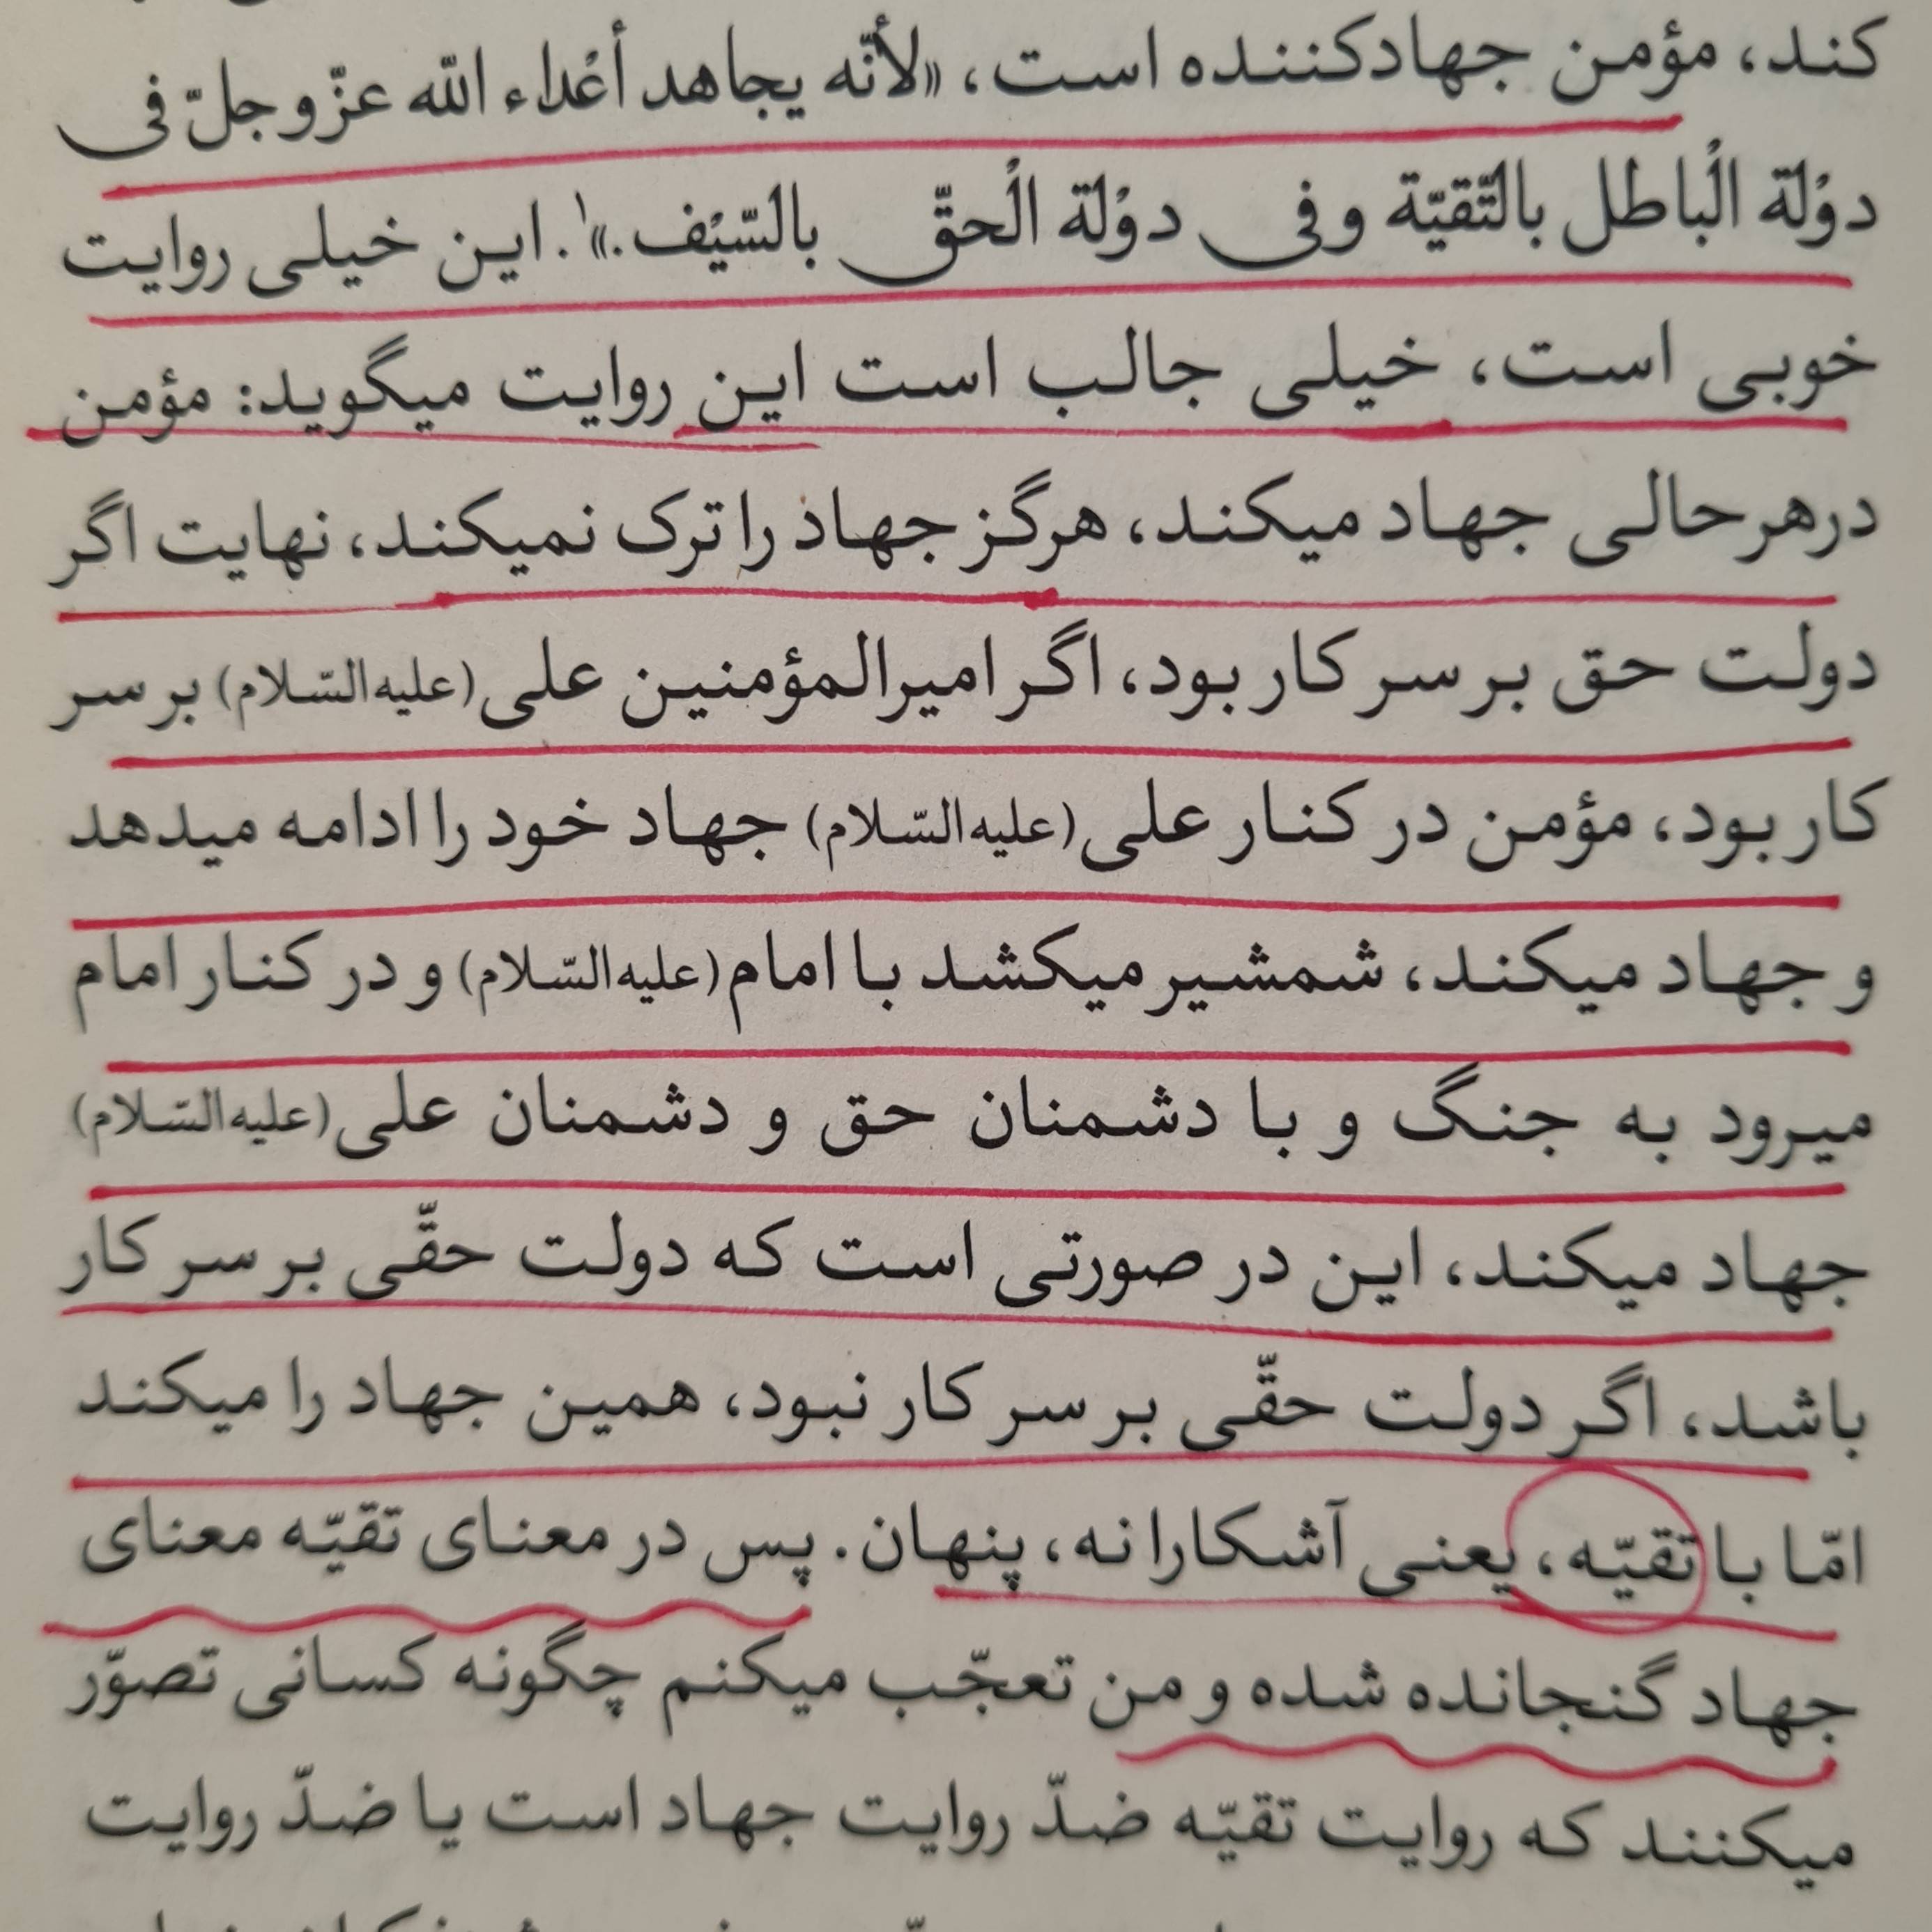 کند، مؤمن جهادکننده است، «لأنّه یجاهد أعْداء الله عزّ و جلّ فی
دوْلة الْباطل بالتّقیّة و فی دوْلة الْحقّ بالسّیْف.»۱. این خیلی روایت
خوبی است، خیلی جالب است این روایت میگوید: مؤمن
درهرحالی جهاد میکند، هرگز جهاد را ترک نمیکند، نهایت اگر
دولت حق بر سر کار بود، اگر امیرالمؤمنین علی (علیه‌السّلام) بر سر
کار بود، مؤمن در کنار علی (علیه‌السّلام) جهاد خود را ادامه میدهد
و جهاد میکند، شمشیر میکشد با امام (علیه‌السّلام) و در کنار امام
میرود به جنگ و با دشمنان حق و دشمنان علی (علیه‌السّلام)
جهاد میکند، این در صورتی است که دولت حقّی بر سر کار
باشد، اگر دولت حقّی بر سر کار نبود، همین جهاد را میکند
امّا با تقیّه، یعنی آشکارا نه، پنهان. پس در معنای تقیّه معنای
جهاد گنجانده شده و من تعجّب میکنم چگونه کسانی تصوّر
میکنند که روایت تقیّه ضدّ روایت جهاد است یا ضدّ روایت